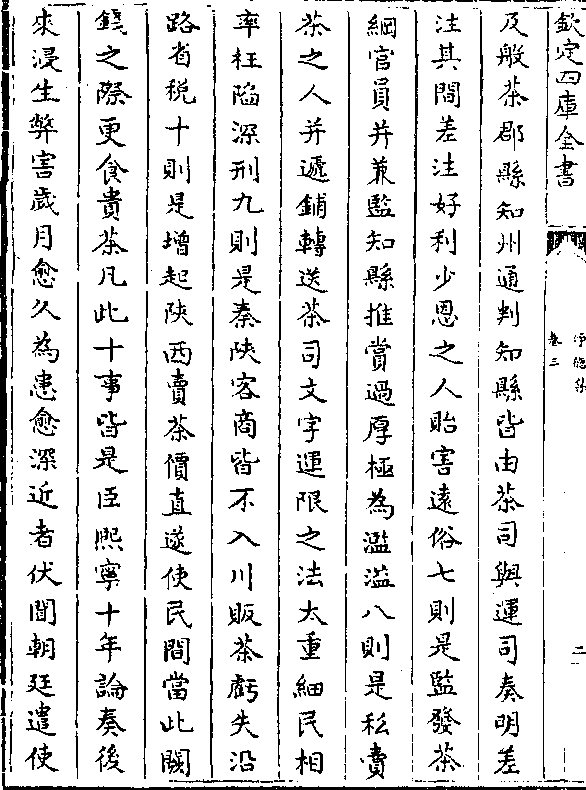 欽定四庫全書
淨德集
卷三
二
及般茶郡縣知州通判知縣皆由茶司與運司奏明差
注其間差注好利少恩之人貽害遠俗七則是監發茶
綱官員并兼監知縣推賞過厚極為濫溢八則是私賣
茶之人并遞鋪轉送茶司文字運限之法太重細民相
率枉陷深刑九則是秦陝客商皆不入川販茶虧失沿
路省稅十則是增起陝西賣茶價直遂使民間當此闕
錢之際更食貴茶凡此十事皆是臣熙寧十年論奏後
來浸生弊害歲月愈久為患愈深近者伏聞朝廷遣使